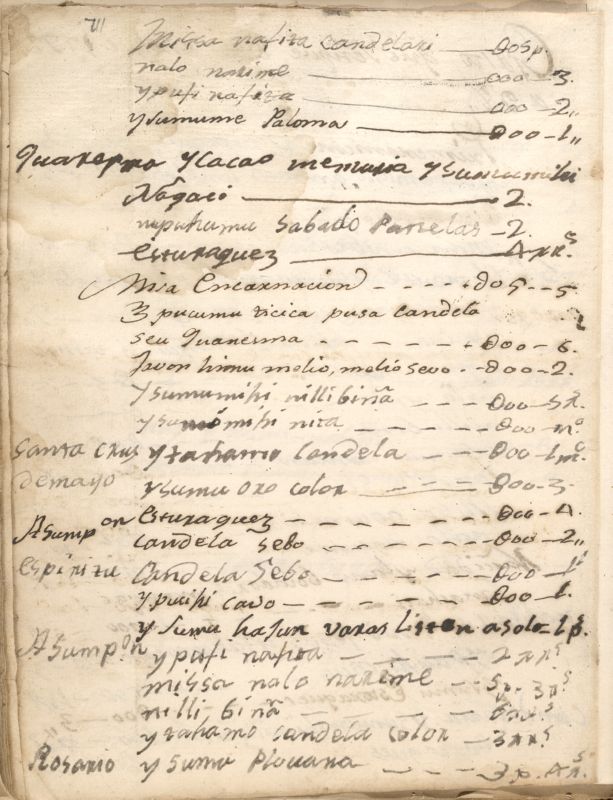 Missa nafita candelari — 005p.
nalo narime — 000 — 3.
ypufi nafita — 000 — 2,,
ysumume Paloma — 000 — 1,,
quaresma ycacao memuria ysumumihi
— 2.
mpuhumu Sabado Panelas — 2.
esturaquez — 4 rr.s
Misa Encarnacion - - - - + 005 - - 5
3 pucumu xicica pusa candela
seu quaresma - - - - - + 000 - 6.
Javon himu molio, molio sevo - - 000 - 2.
ysumumihi nillibiña - - - 000 - 5 R.
nita - - - 000 -
Santa Crus ytahamo Candela — 000 - 1 m.o
demayo ysumu oro color — 000 - 3
Asumpon esturaquez - - - - - - 000 - 4.
candela Sebo - - - - - - 000 - 2,,
espiritu Candela Sebo - - - - 000 - 1
ypuihi cavo - - - - - 000 1.
ysumu hafun varas liston asolo - 1 p.s
Asumpon ypufi nafita - - - 2 rr.s
missa nalo narime - - 5p. 3 rr.s
nilli, biña - - - 6 rr.s
ytahamo candela color - 3 rr.s
Rosario ysumu Plouana - - - 3 p. 4 R.s